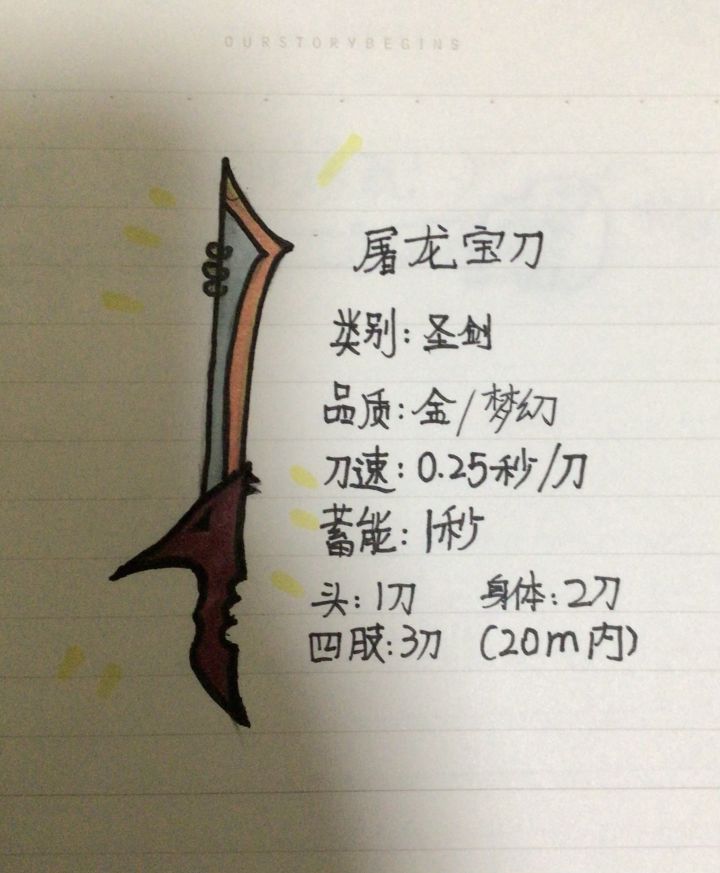 OURSTORYBEGINS
屠龙宝刀
类别:圣剑
品质:金/梦幻
刀速:0.25秒/刀
蓄能:1秒
头:1刀 身体:2刀
四肢:3刀 (20m内)